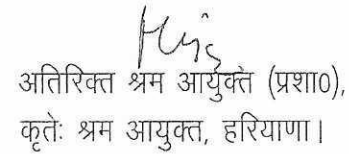 अतिरिक्त श्रम आयुक्त (प्रशा०),
कृतेः श्रम आयुक्त, हरियाणा।